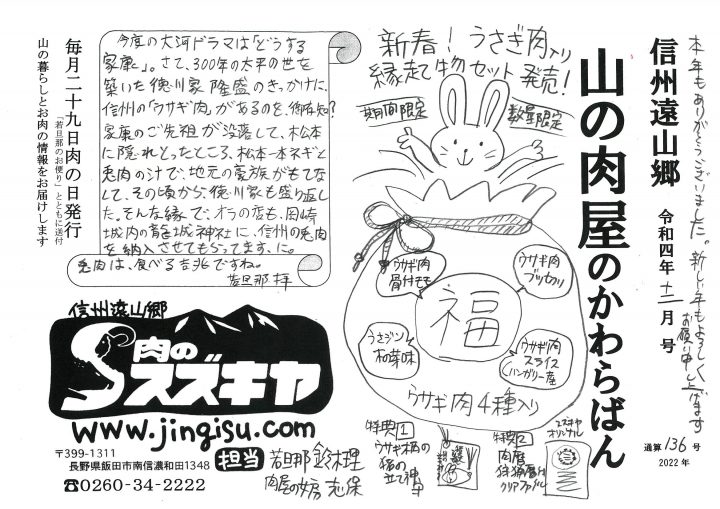 本年もありがとうございました。新しい年もよろしく
お願い申し上げます
信州遠山郷
令和四年十二月号
山の肉屋のかわらばん
通算136号
2022年
新春！うさぎ肉入り
縁起物セット発売！
期間限定
数量限定
ウサギ肉
骨付モモ
ウサギ肉
ブツ切り
福
うさジン
木の芽味
ウサギ肉
スライス
ハンガリー産
ウサギ肉4種入り
特典1
ウサギ柄の
猪の
立て神
特典2
肉屋
クリアファイル
スズキヤ
オリジナル
今度の大河ドラマは「どうする
家康」。さて、300年の太平の世を
築いた徳川家隆盛のきっかけに、
信州の「ウサギ肉」があるのを、御存知？
家康のご先祖が没落して、松本
に隠れとったところ、松本一本ネギと
兎肉の汁で、地元の豪族がもてな
して、その頃から、徳川家も盛り返し
た。そんな縁で、オラの店も、岡崎
城内の龍城神社に、信州の兎肉
を納入させてもらってます、に。
兎肉は、食べる吉兆ですね。
若旦那 拝
毎月二十九日肉の日発行
「若旦那のお便り」とともに送付
山の暮らしとお肉の情報をお届けします
信州遠山郷
肉の
スズキヤ
www.jingisu.com
〒399-1311
長野県飯田市南信濃和田1348
☎0260-34-2222
担当
若旦那 鈴木理
肉屋の女房 志保